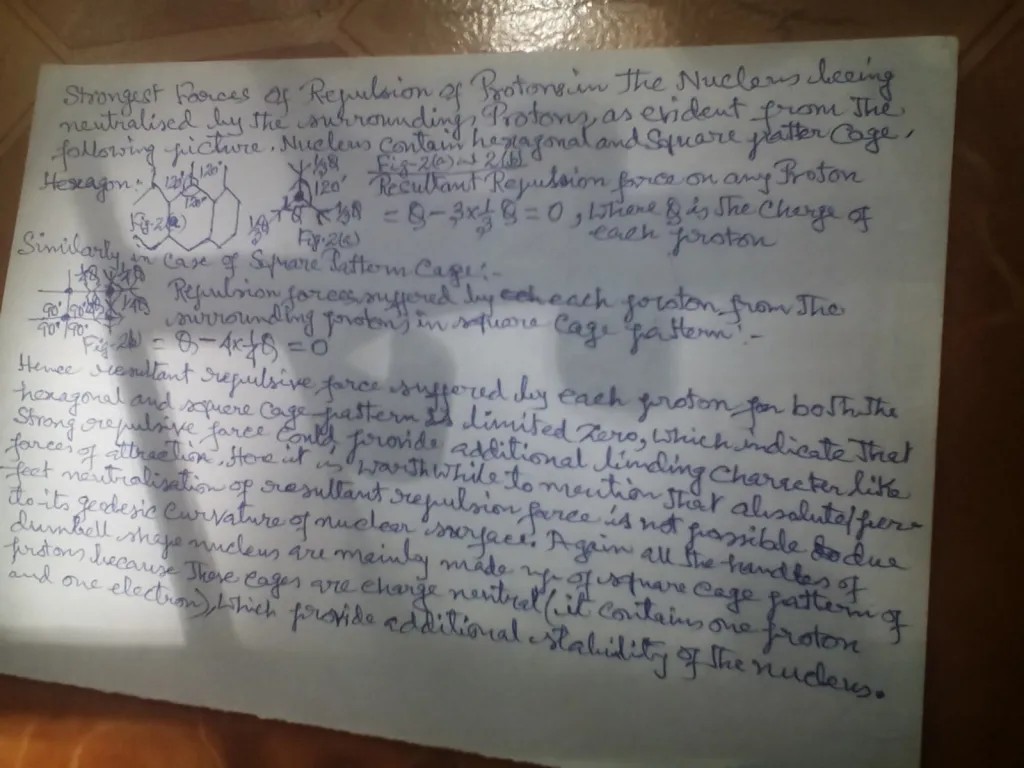 Strongest Forces of Repulsion of Protons in the Nucleus being
neutralised by the surroundings Protons, as evident from The
following picture. Nucleus contain hexagonal and Square patter Cage,
Fig-2(a) and 2(b)
Hexagon:- 120° 120° 120° Fig-2(a)
⅓Q 120° ⅓Q ⅓Q Q Fig-2(a)
Resultant Repulsion force on any Proton
= Q - 3x⅓Q = 0, Where Q is The Charge of
each proton
Similarly, in case of Square Pattern Cage:-
¼Q ¼Q ¼Q 90° 90° 90° 90° Fig-2b)
Repulsion forces suffered by each proton from The
surrounding protons in square Cage pattern:-
= Q - 4x¼Q = 0
Hence resultant repulsive force suffered by each proton for both The
hexagonal and squere Cage pattern is limited Zero, which indicate That
Strong repulsive force Could provide additional binding Character like
forces of attraction. Here it is warthwhile to mention That absolute/per-
fect neutralisation of resultant repulsion force is not possible due
to its geodesic Curvature of nuclear surface. Again all The handles of
dumbell shape nucleus are mainly made up of square cage pattern of
protons because These cages are charge neutral (it contains one proton
and one electron), which provide additional stability of The nucleus.